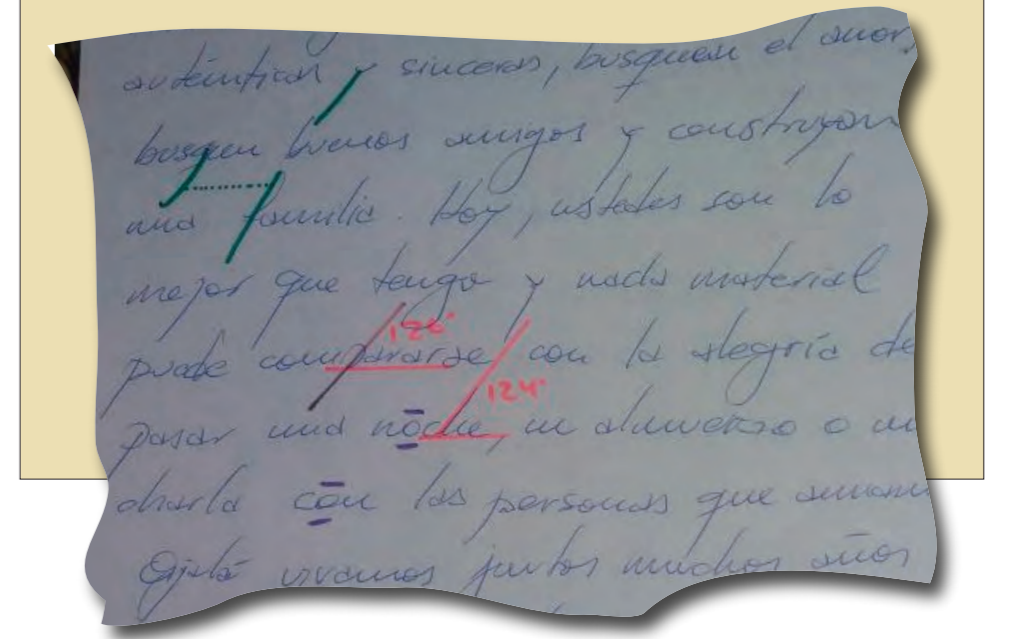 auténticas y sinceras, busquen el amor,
busquen buenos amigos y construyan
una familia. Hoy, ustedes son lo
mejor que tengo y nada material
puede compararse con la alegría de
126°
124°
pasar una noche, un almuerzo o un
charla con las personas que amamos
Ojalá vivamos juntos muchos años